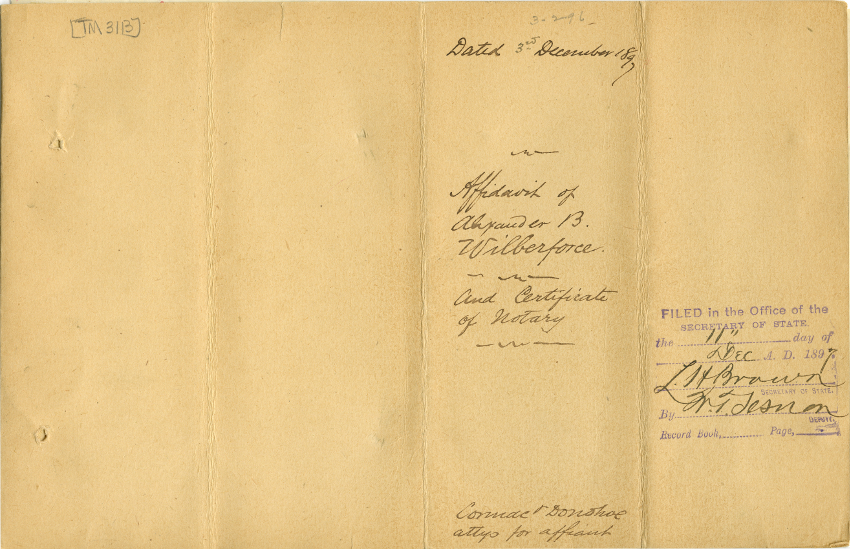 [TM 311B]
3-2-96-
Dated 3rd December 1897
Affidavit of
Alexander B.
Wilberforce.
And Certificate
of Notary
FILED in the Office of the
SECRETARY OF STATE.
the 11" day of
Dec A. D. 1897
L. H Brown
SECRETARY OF STATE.
By W. T.
DEPUTY.
Record Book, Page,
Cormac & Donohoe
attys for affiant